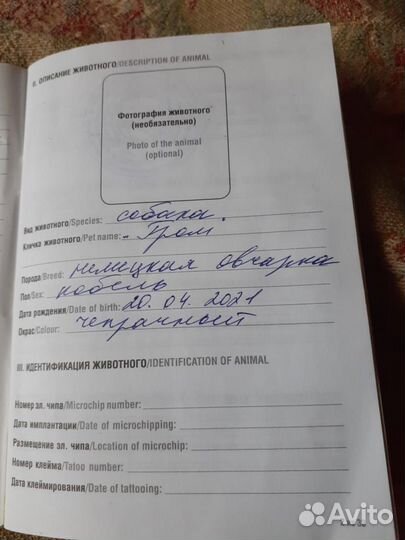 II. ОПИСАНИЕ ЖИВОТНОГО/DESCRIPTION OF ANIMAL
Фотография животного
(необязательно)
Photo of the animal
(optional)
Вид животного/Species: собака.
Кличка животного/Pet name: - Гром
Порода/Breed: немецкая овчарка
Пол/Sex: кобель
Дата рождения/Date of birth: 20.04.2021
Окрас/Colour: чепрачный
III. ИДЕНТИФИКАЦИЯ ЖИВОТНОГО/IDENTIFICATION OF ANIMAL
Номер эл. чипа/Microchip number:
Дата имплантации/Date of microchipping:
Размещение эл. чипа/Location of microchip:
Номер клейма/Tatoo number:
Дата клеймирования/Date of tattooing:
Avito